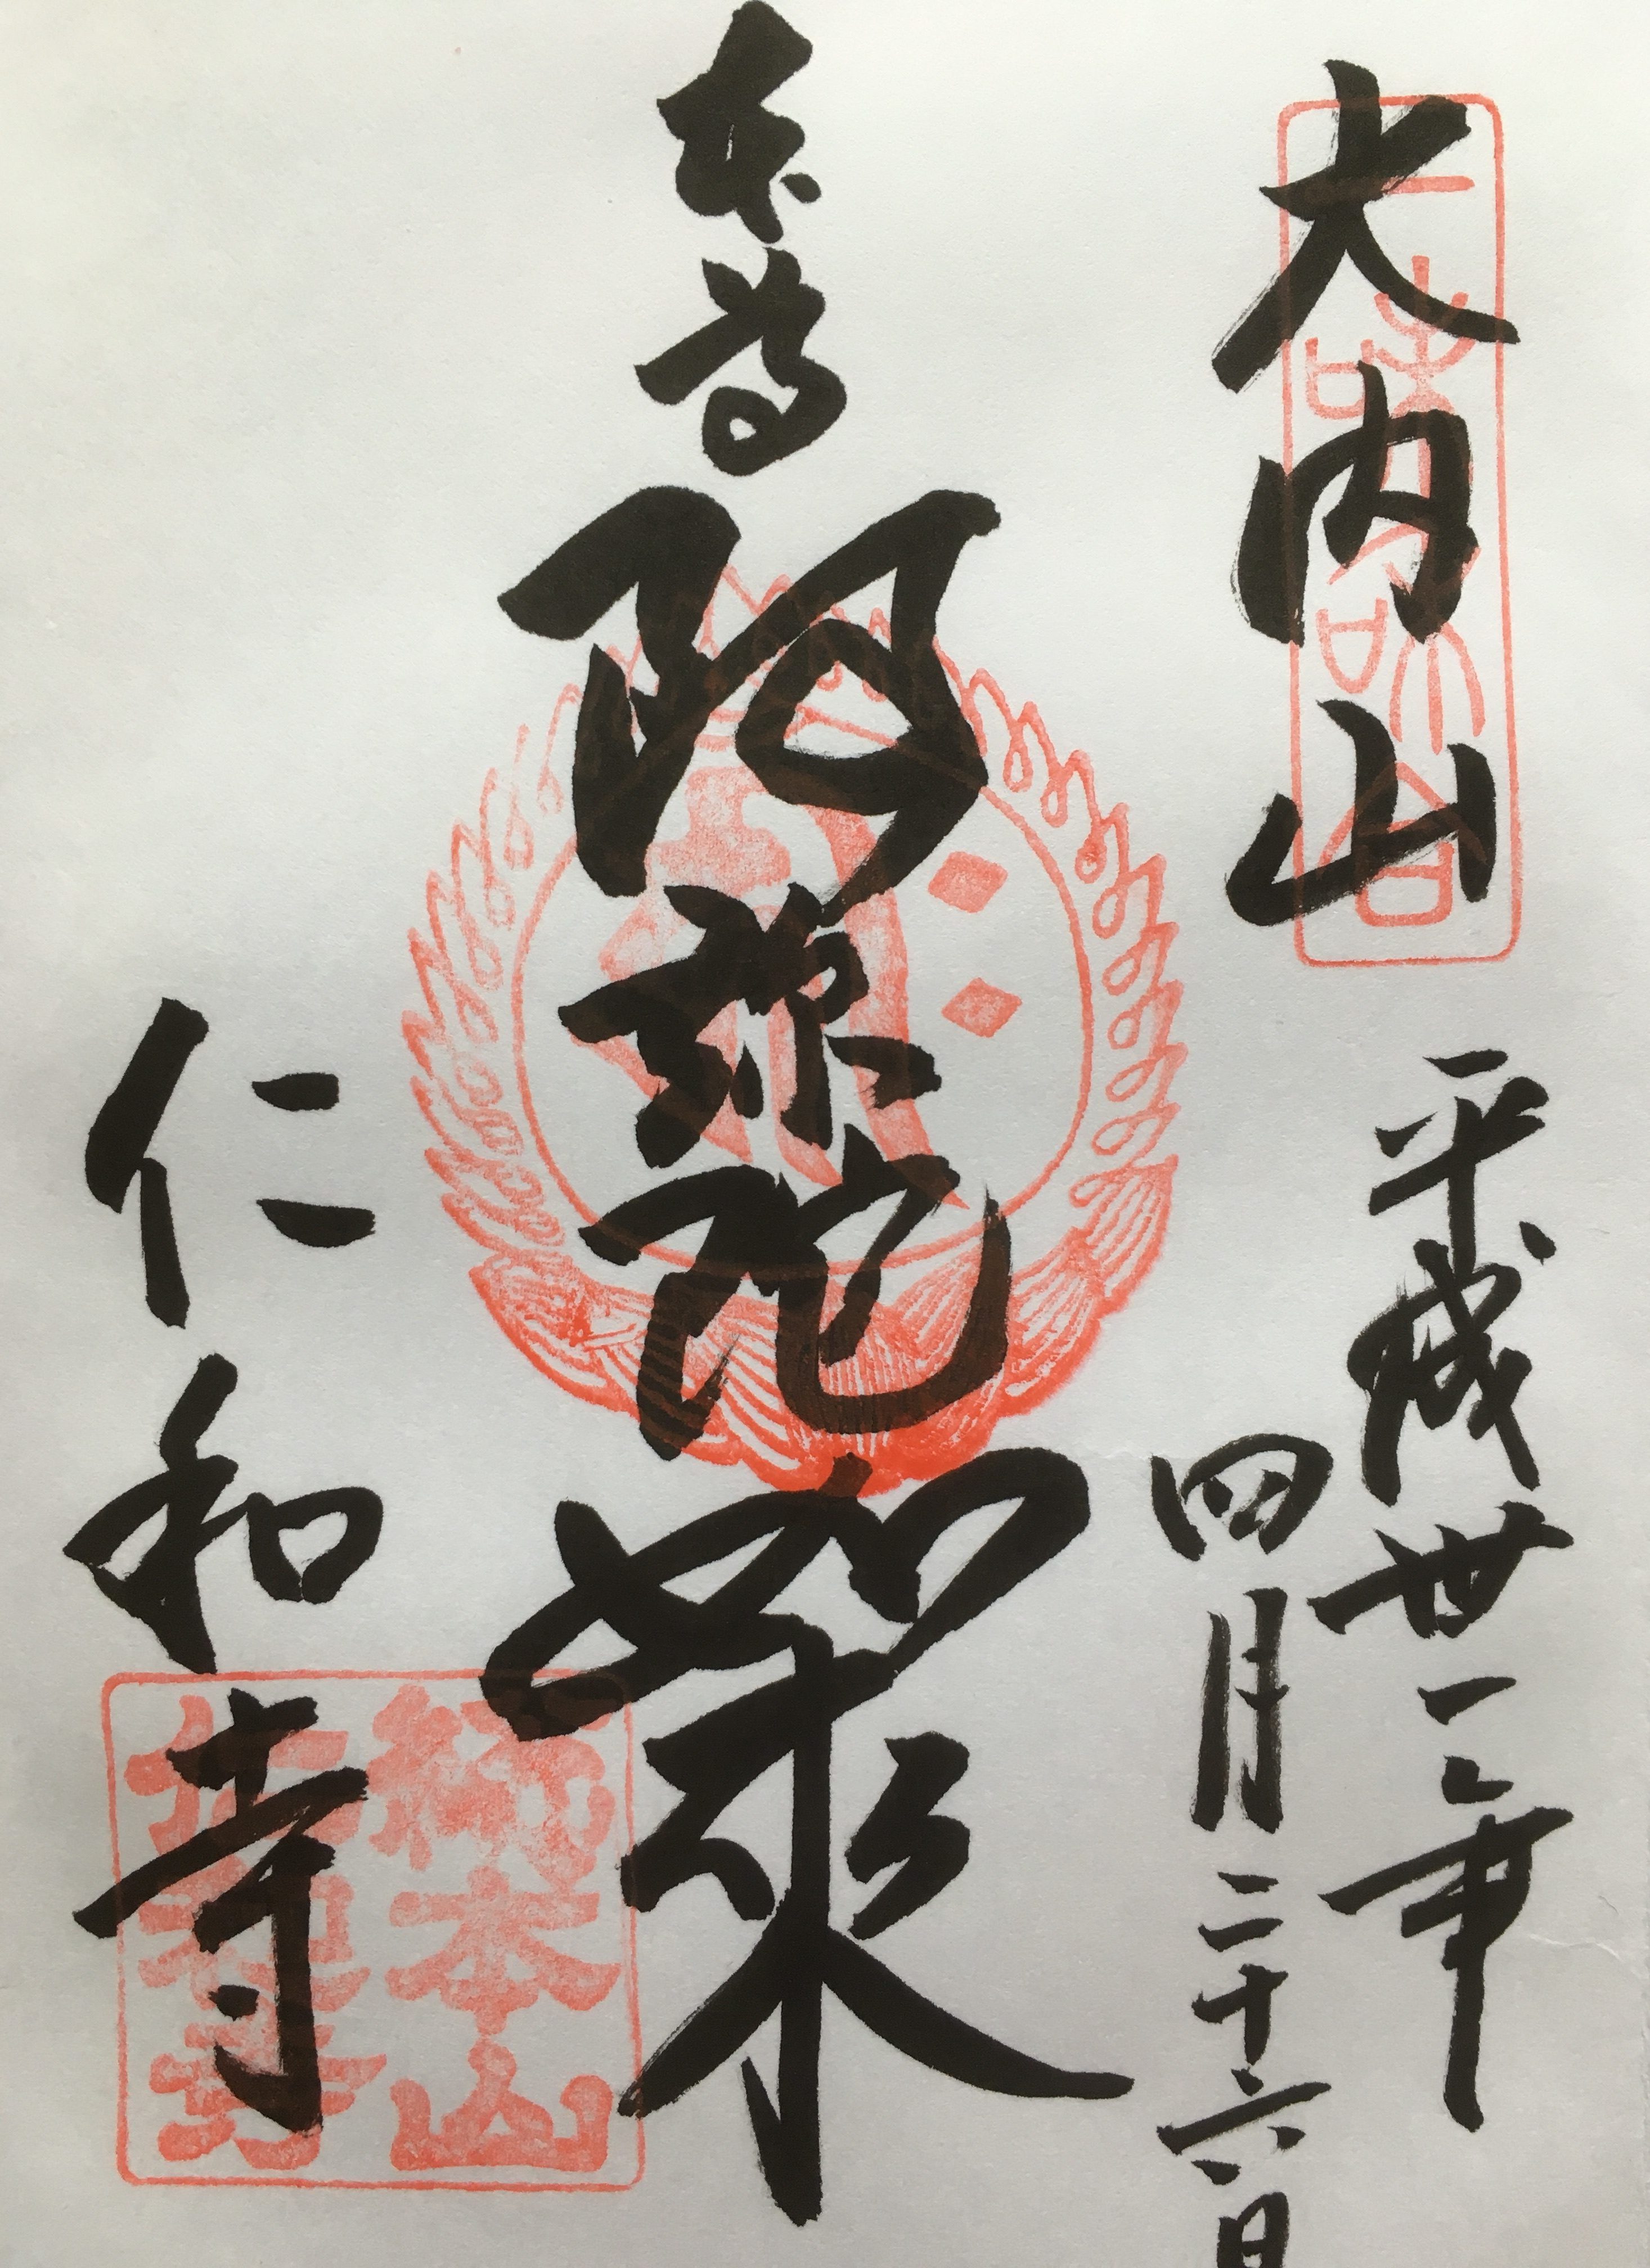 大内山
平成丗一年
四月二十六日
本尊
阿弥陀如来
仁和寺
總本山
仁和寺